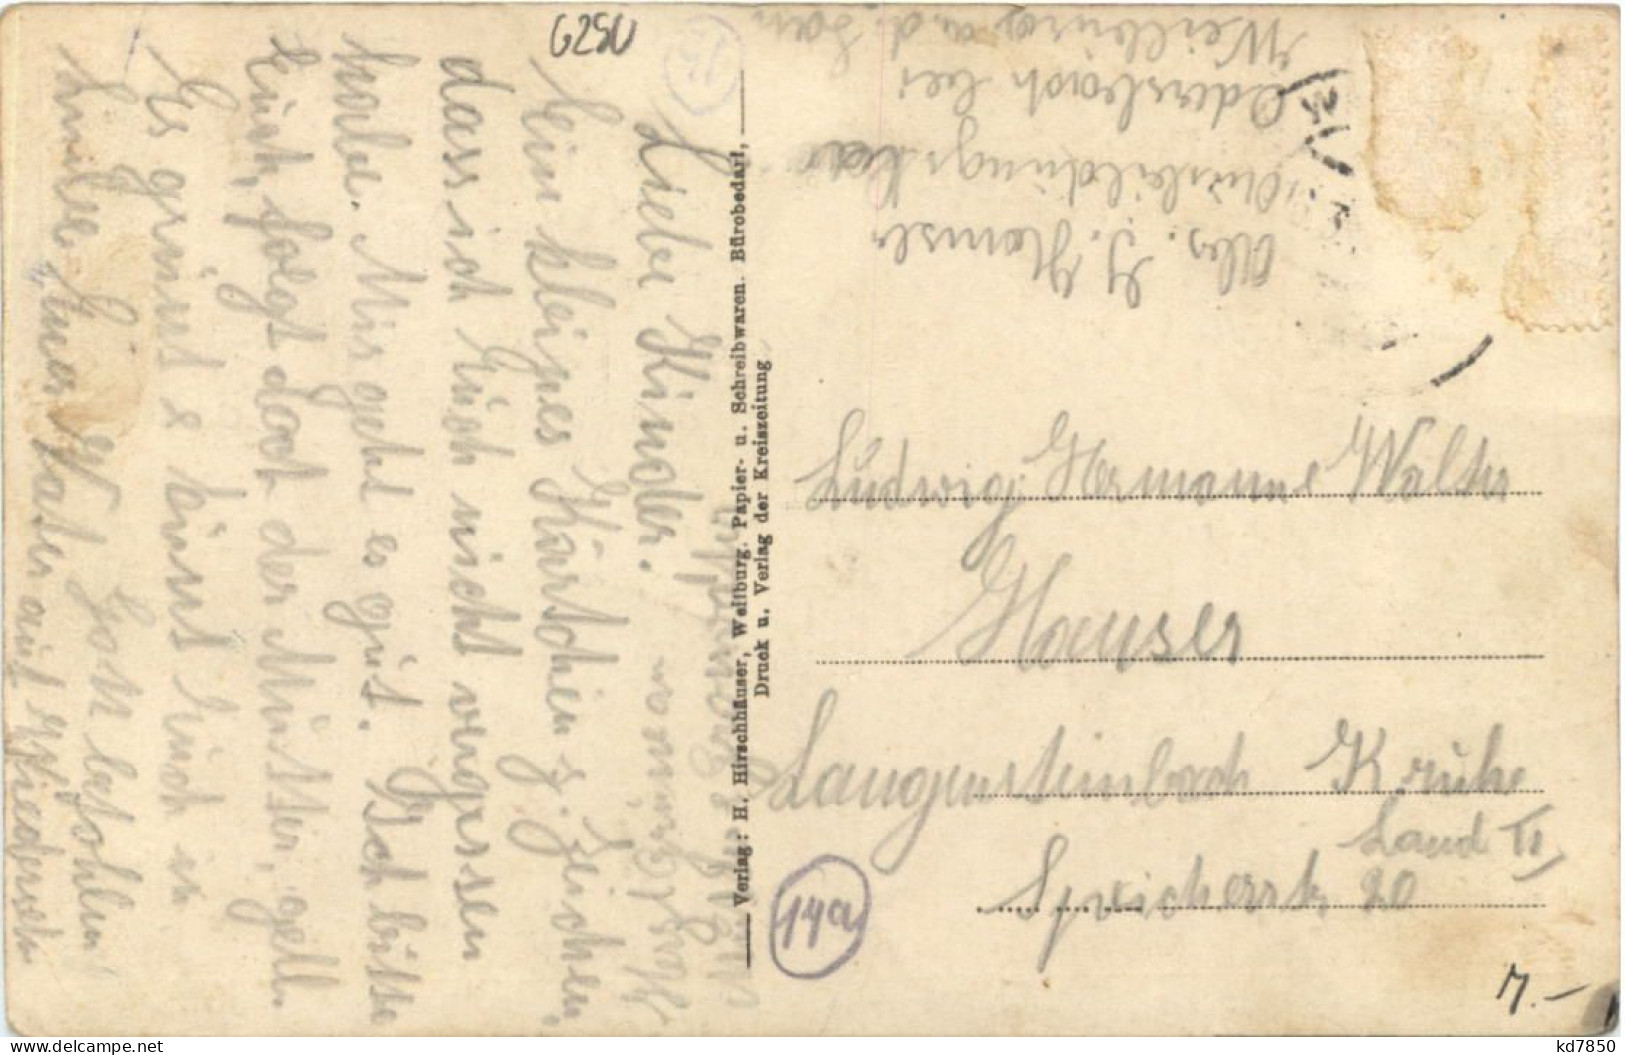 6250
Liebe Kinder.
Ein kleines Kärtchen z. Zeichen,
dass ich Euch nicht vergessen
habe. Mir geht es gut. Ich bitte
Euch, folgt doch der Mutter, gell.
Es grüsst & küsst Euch in
Liebe Euer Vater auf Wiederseh
Gott befohlen
Verlag: H. Hirschhäuser, Weilburg. Papier- u. Schreibwaren. Bürobedarf,
Druck u. Verlag der Kreiszeitung
Abs. J. Hauser
Odersbach bei
Weilburg a. d. Lan
Ludwig Hermann Walter
Hauser
Langensteinbach Kruhe
Land II
Speicherstr 20
14a
7.-
kd7850